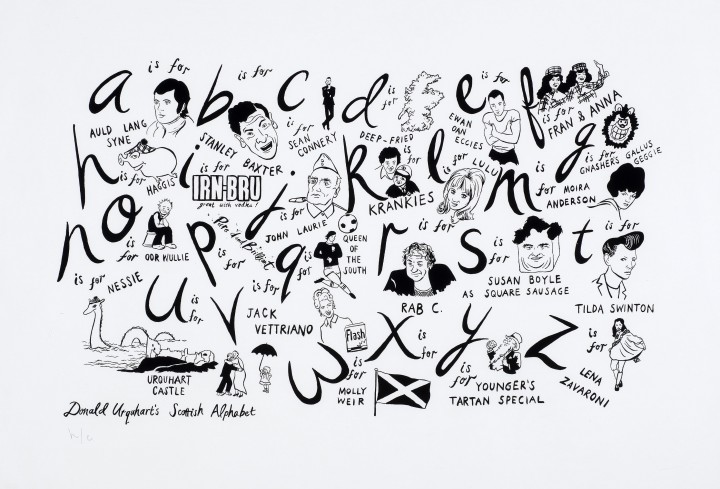 a is for AULD LANG SYNE
b is for STANLEY BAXTER
c is for SEAN CONNERY
d is for DEEP-FRIED
e is for EWAN OAN ECCIES
f is for FRAN & ANNA
g is for GNASHERS GALLUS GEGGIE
h is for HAGGIS
i is for IRN-BRU
great with vodka!
j is for JOHN LAURIE
k is for KRANKIES
l is for LULU
m is for MOIRA ANDERSON
n is for NESSIE
o is for OOR WULLIE
p is for "Pure Dead Brilliant"
q is for QUEEN OF THE SOUTH
r is for RAB C.
s is for SUSAN BOYLE
AS SQUARE SAUSAGE
t is for TILDA SWINTON
u is for URQUHART CASTLE
v is for JACK VETTRIANO
w is for MOLLY WEIR
flash
x is for
y is for YOUNGER'S TARTAN SPECIAL
z is for LENA ZAVARONI
Donald Urquhart's Scottish Alphabet